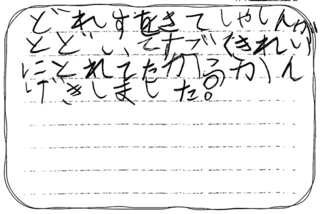 どれすをきてしゃしんが
とどいてすごくきれい
にとれてたからかん
げきしました。